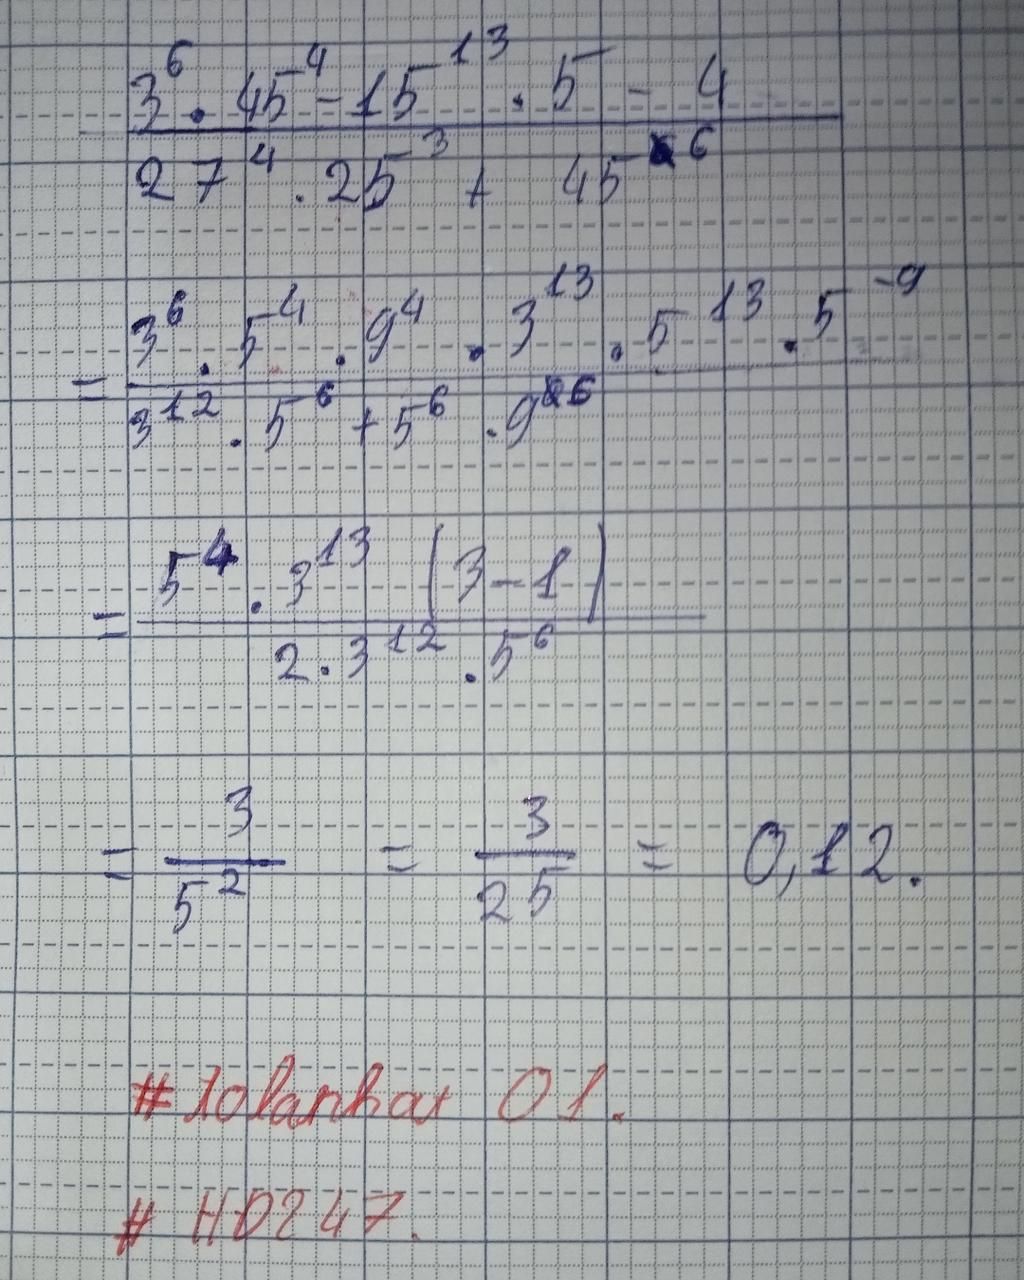 3⁶ . 45⁴ - 15¹³ . 5 - 4
27⁴ . 25³ + 45⁶
= 3⁶ . 5⁴ . 9⁴ . 3¹³ . 5¹³ . 5⁻⁹
3¹² . 5⁶ + 5⁶ . 9⁶
= 5⁴ . 3¹³ (3 - 1)
2 . 3¹² . 5⁶
= 3/5² = 3/25 = 0,12.
01.
# HD247.